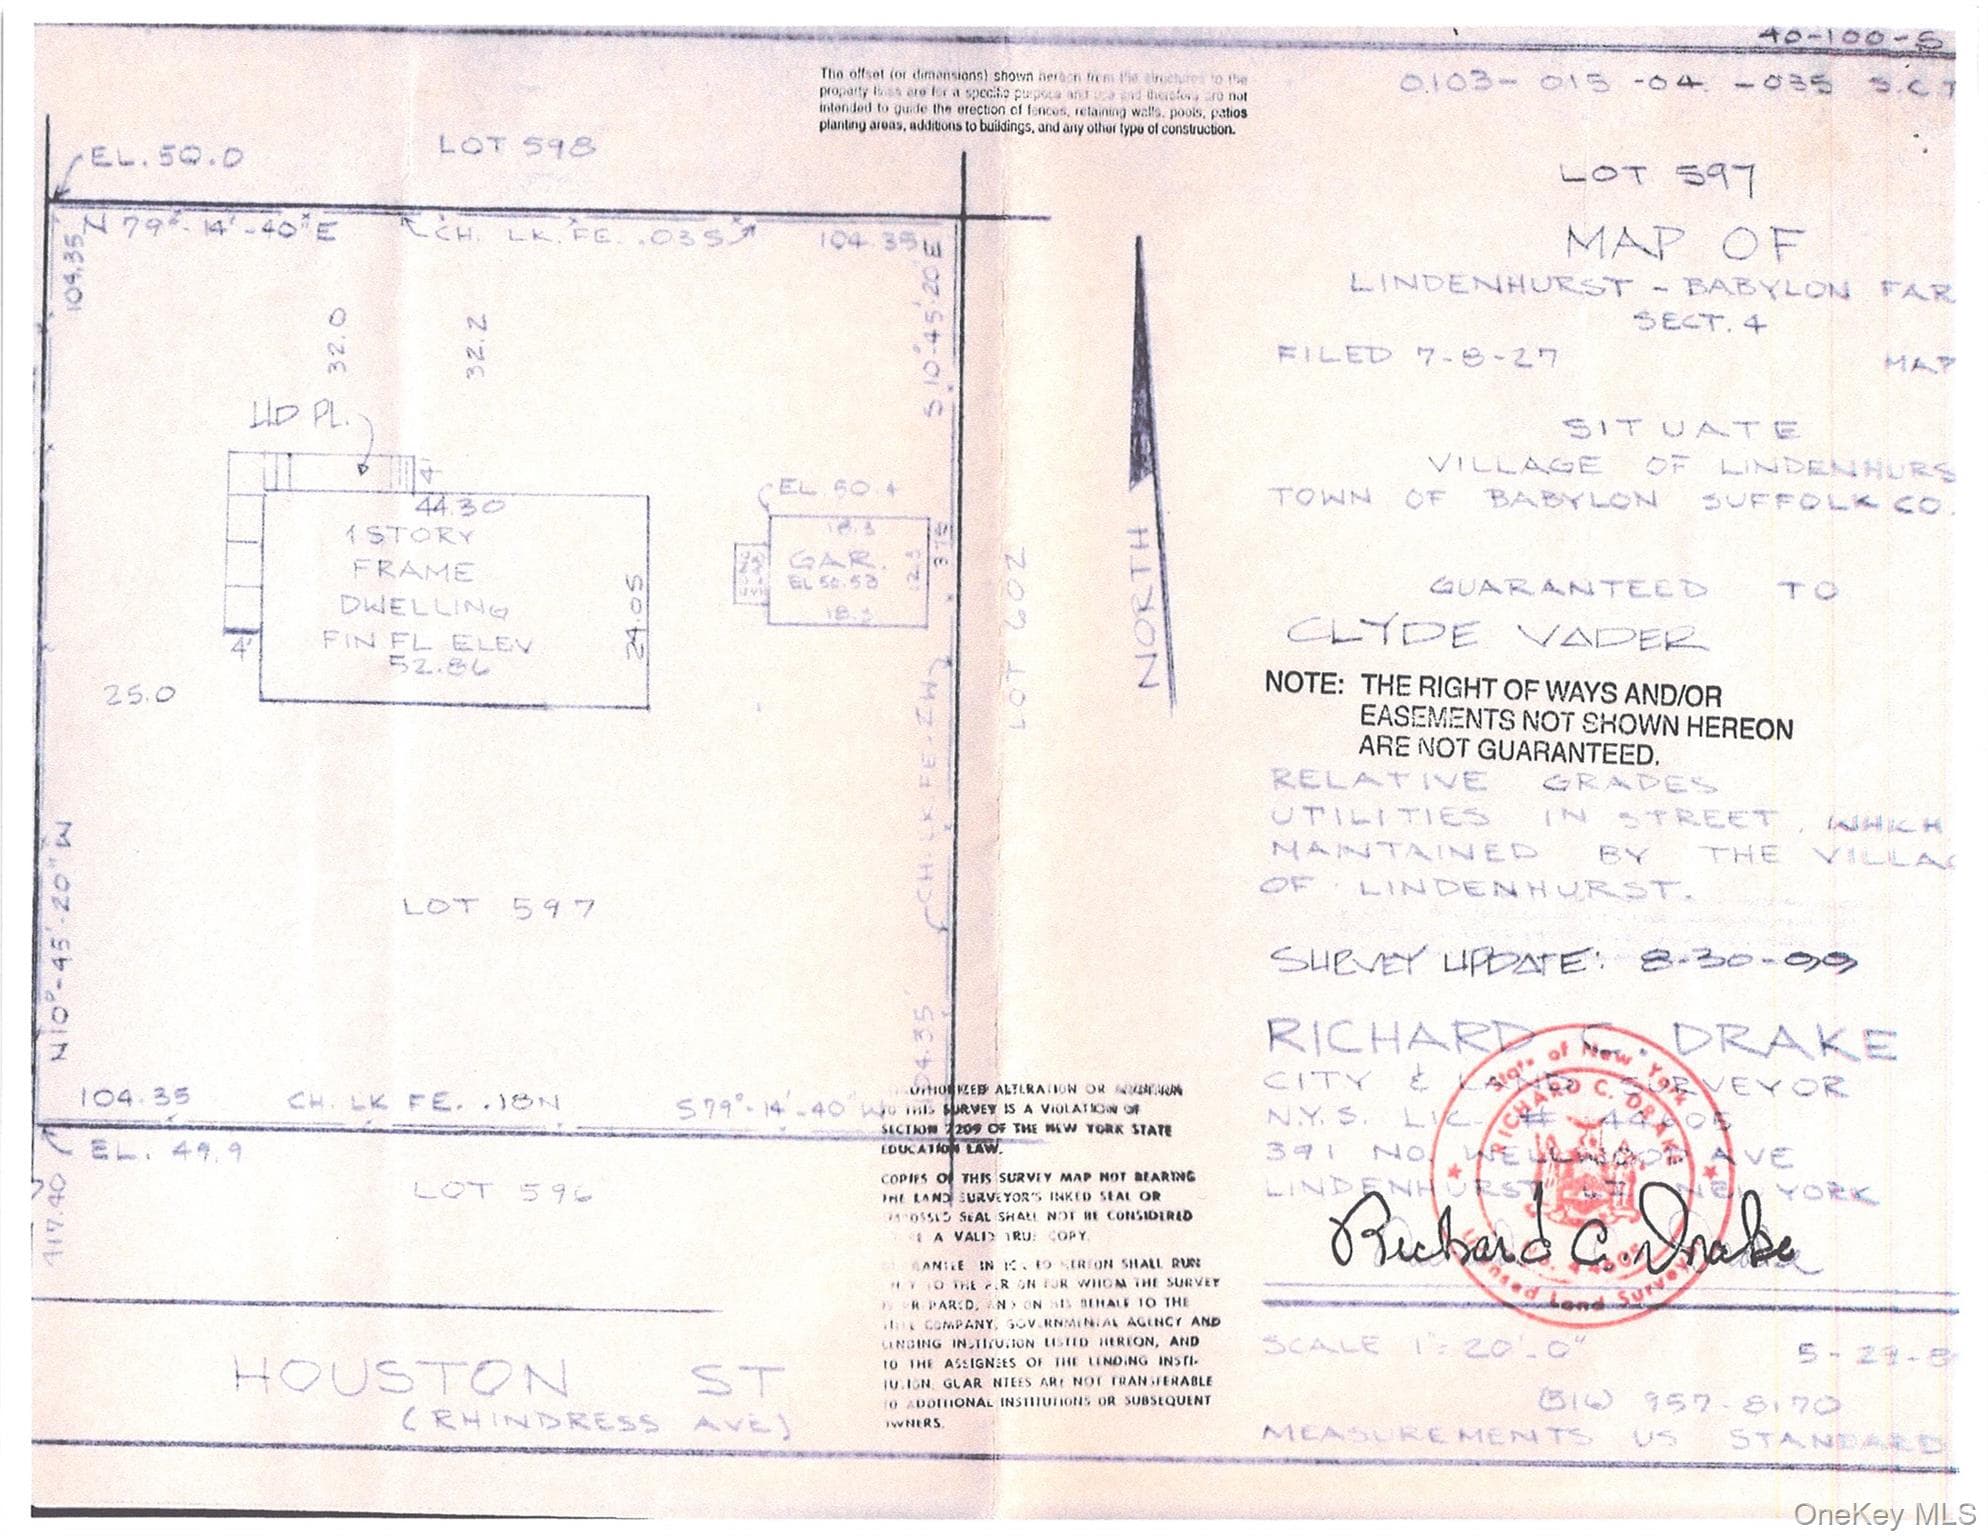 40-100-S
0103- 015 -04 -035 S.C.T
The offset (or dimensions) shown hereon from the structures to the
property lines are for a specific purpose and use and therefore are not
intended to guide the erection of fences, retaining walls, pools, patios
planting areas, additions to buildings, and any other type of construction.
LOT 598
EL. 50.0
N 79°-14'-40"E
CH. LK. FE. .03S
104.35
104.35
S 10°-45'-20"E
32.0
32.2
WD PL.
4'
44.30
1 STORY
FRAME
DWELLING
FIN FL ELEV
52.86
24.05
4'
25.0
EL. 50.4
18.3
GAR.
EL 50.53
18.3
12.3
LOT 602
CH. LK FE. .2W
LOT 597
N10°-45'-20"W
104.35'
104.35
CH. LK FE. .18N
S79°-14'-40"W
EL. 49.9
LOT 596
417.40
HOUSTON ST
(RHINDRESS AVE)
NORTH
LOT 597
MAP OF
LINDENHURST - BABYLON FAR
SECT. 4
FILED 7-8-27 MAP
SITUATE
VILLAGE OF LINDENHURS
TOWN OF BABYLON SUFFOLK CO.
GUARANTEED TO
CLYDE VADER
NOTE: THE RIGHT OF WAYS AND/OR
EASEMENTS NOT SHOWN HEREON
ARE NOT GUARANTEED.
RELATIVE GRADES
UTILITIES IN STREET, WHICH
MAINTAINED BY THE VILLAG
OF LINDENHURST.
SURVEY UPDATE: 8-30-99
RICHARD C. DRAKE
CITY & LAND SURVEYOR
N.Y.S. LIC. # 44605
391 NO. WELLWOOD AVE
LINDENHURST NEW YORK
State of New York
RICHARD C. DRAKE
Licensed Land Surveyor
Richard C. Drake
ALTERATION OR ADDITION
TO THIS SURVEY IS A VIOLATION OF
SECTION 7209 OF THE NEW YORK STATE
EDUCATION LAW.
COPIES OF THIS SURVEY MAP NOT BEARING
THE LAND SURVEYOR'S INKED SEAL OR
EMBOSSED SEAL SHALL NOT BE CONSIDERED
A VALID TRUE COPY.
HEREON SHALL RUN
TO THE PERSON FOR WHOM THE SURVEY
IS PREPARED, AND ON HIS BEHALF TO THE
TITLE COMPANY, GOVERNMENTAL AGENCY AND
LENDING INSTITUTION LISTED HEREON, AND
TO THE ASSIGNEES OF THE LENDING INSTI-
TUTION. GUARANTEES ARE NOT TRANSFERABLE
TO ADDITIONAL INSTITUTIONS OR SUBSEQUENT
OWNERS.
SCALE 1"=20'-0"
(516) 957-8170
MEASUREMENTS US STANDARD
OneKey MLS